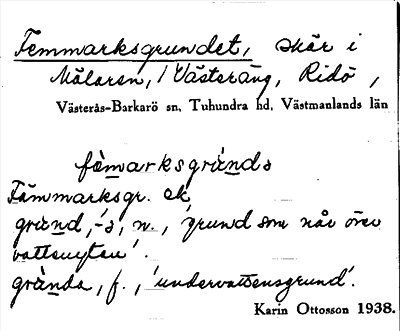 Femmarksgrundet, skär i
Mälaren, / Västeräng, Ridö,
Västerås-Barkarö sn, Tuhundra hd, Västmanlands län
fèmarksgrùnda
Fämmarksgr. ek
grùnd, -s, n., 'grund som når över
vattenytan'.
grùnda, f., 'undervattensgrund'.
Karin Ottosson 1938.